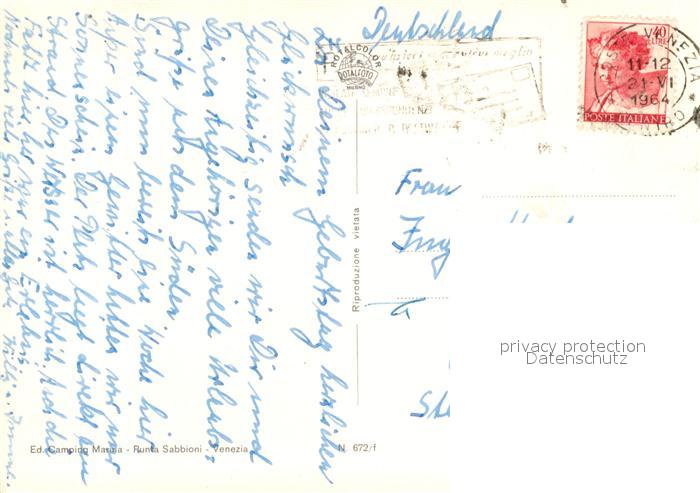 Deutschland
ROTALCOLOR
ROTALFOTO
MILANO
40
LIRE
VENEZIA
11-12
21-VI
1964
POSTE ITALIANE
Zu Deinem Geburtstag herzlichen
Glückwunsch
Gleichzeitig senden wir Dir und
Deinen Angehörigen viele Urlaubs-
grüße aus dem Süden.
Sind nun bereits eine Woche hier
Außer einem Gewitter hatten wir nur
Sonnenschein. Der Platz liegt direkt am
Strand. Das Wasser ist herrlich. Auch die
Fahrt hier her war ein Erlebnis
Nochmals viele Grüße
Frau
Riproduzione vietata
Ed. Camping Marina - Punta Sabbioni - Venezia
N. 672/f
privacy protection
Datenschutz